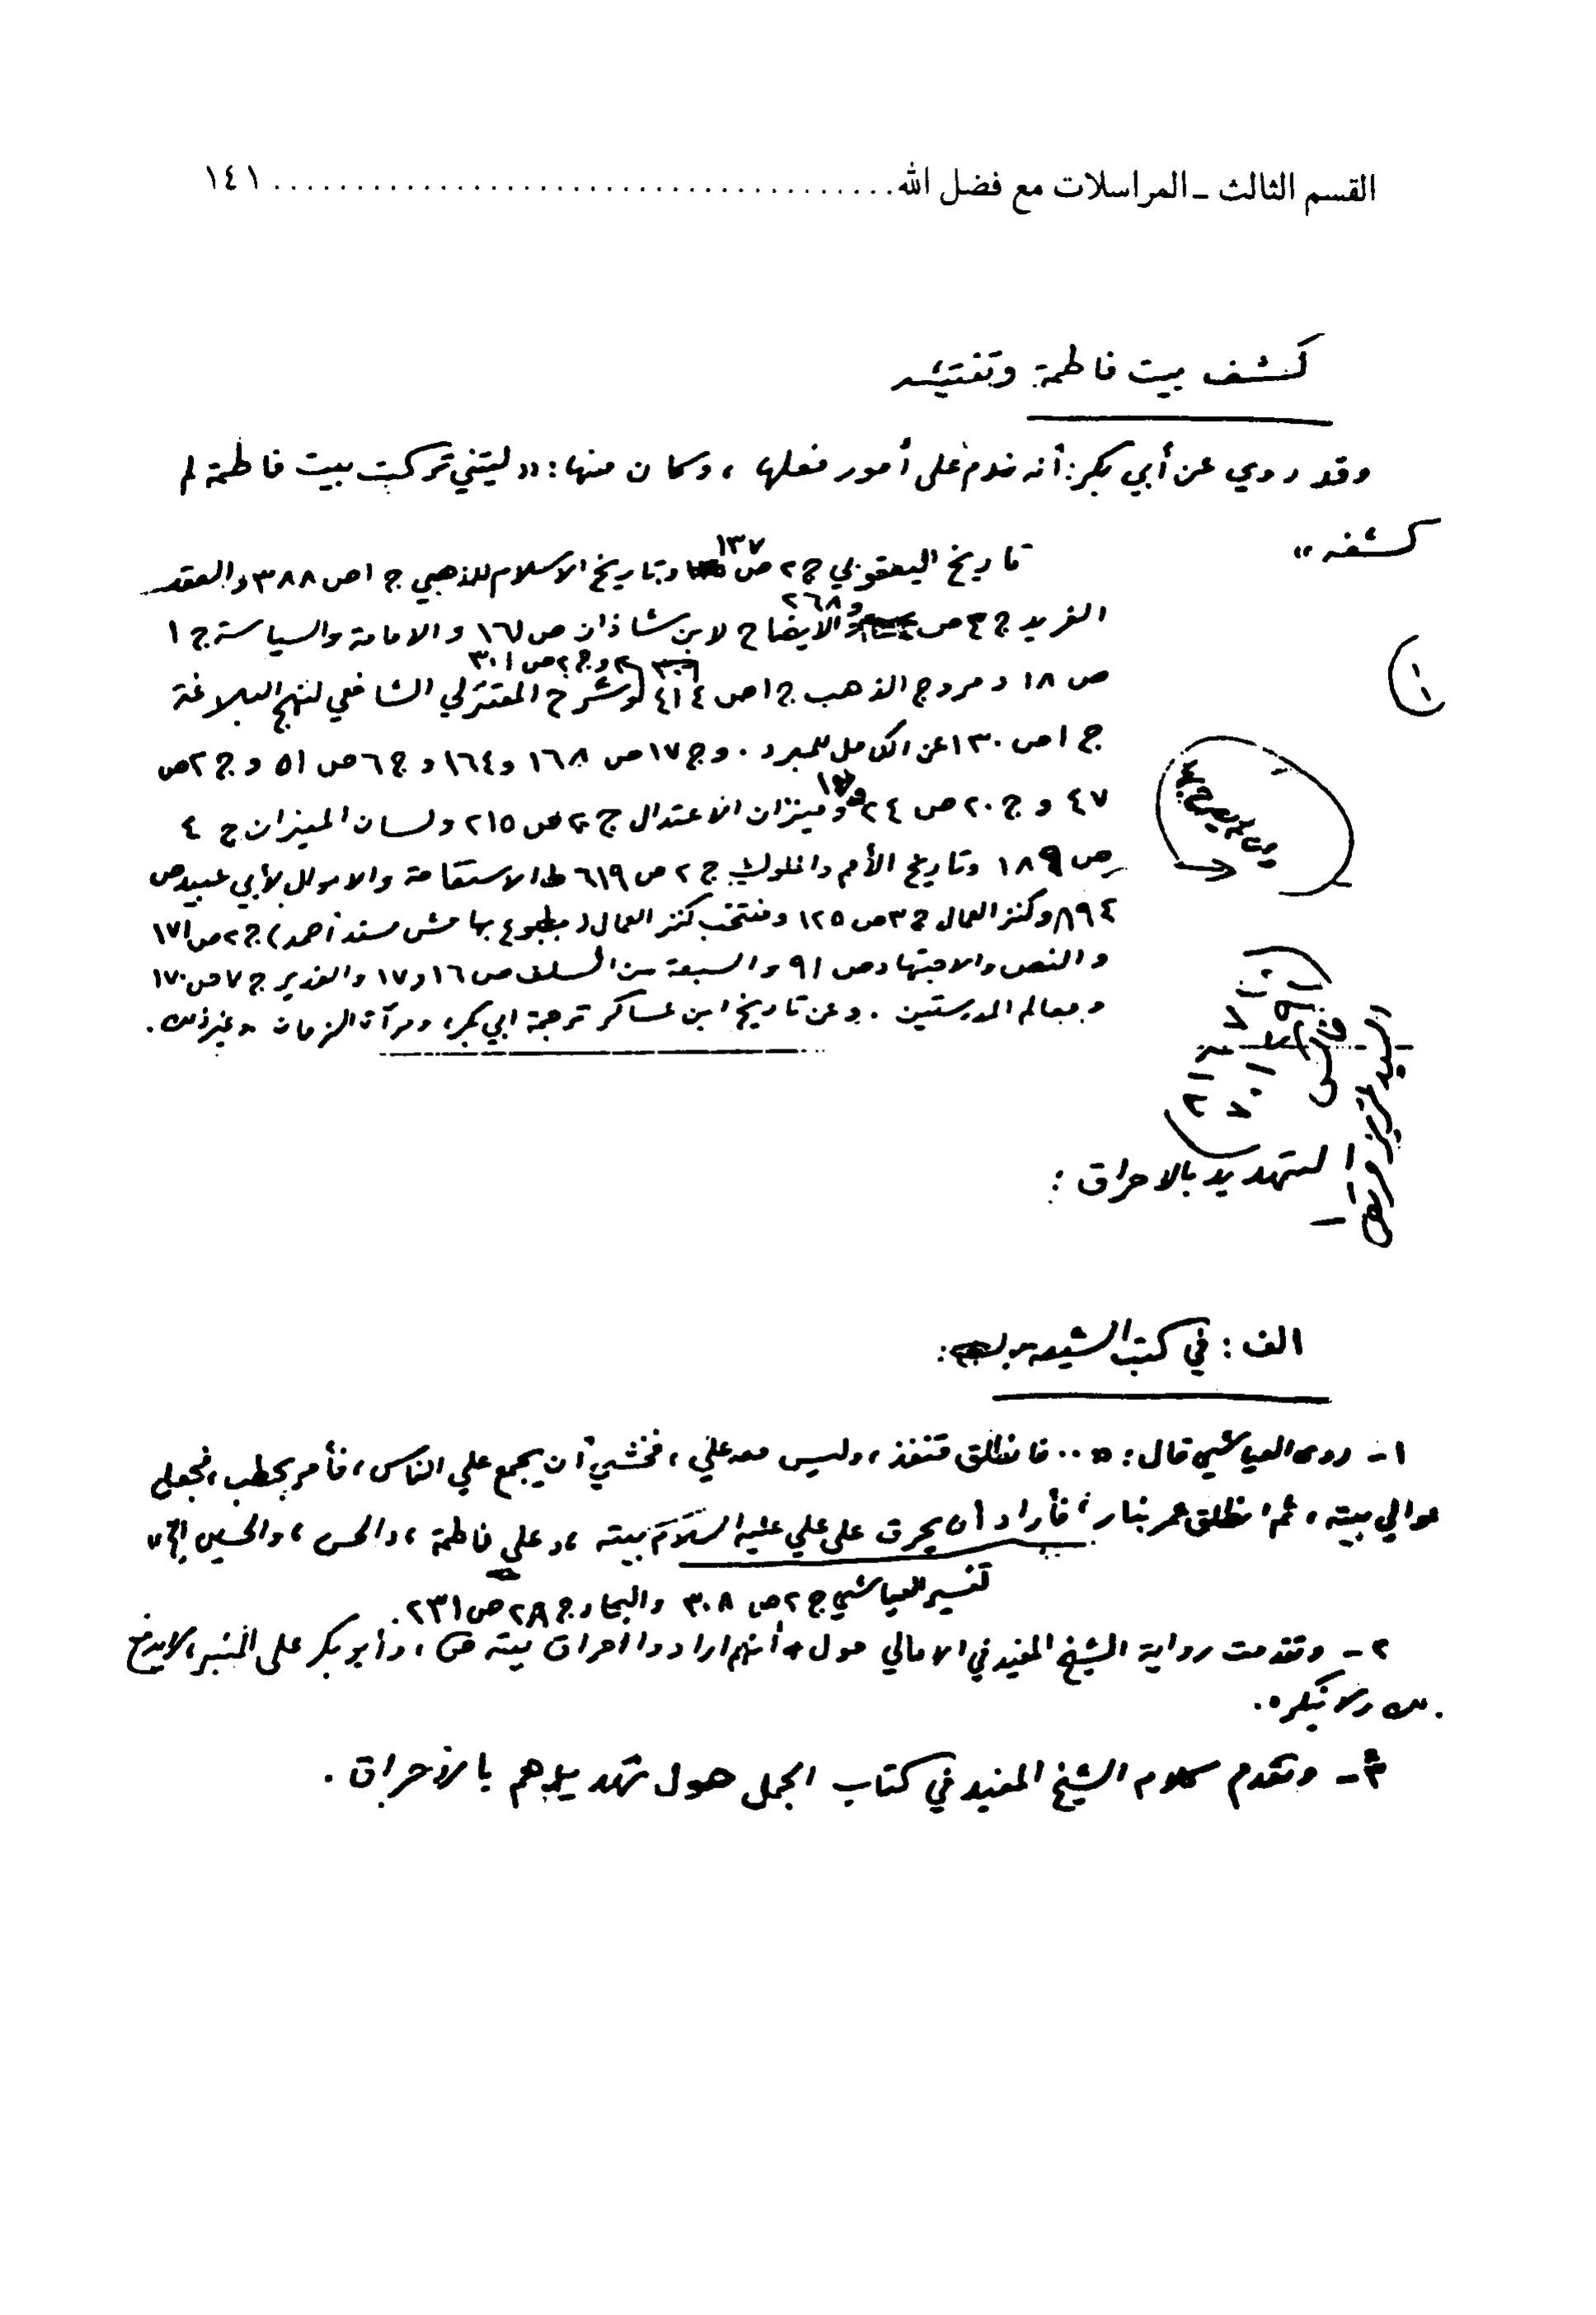 القسم الثالث ـ المراسلات مع فضل الله ........................................ ١٤١
كشف بيت فاطمة وتفتيشه
وقد روي عن أبي بكر: أنه ندم على أمور فعلها، وكان منها: «ليتني تركت بيت فاطمة لم
كشفه»
تاريخ اليعقوبي ج٢ ص ١٣٧ وتاريخ الاسلام للذهبي ج١ ص ٣٨٨ والعقد
الفريد ج ٤ ص ٢٦٨ والايضاح لابن شاذان ص ١٦١ والامامة والسياسة ج ١
ص ١٨ ومروج الذهب ج١ ص ٤١٤ و ج٢ ص ٣٠١ وشرح المعتزلي الشافعي لنهج البلاغة
ج ١ ص ١٣٠ عن الكامل للمبرد . وج ١٧ ص ١٦٨ و ١٦٤ وج ٦ ص ٥١ و ج ٢ ص
٤٧ و ج ٢٠ ص ٢٤ وميزان الاعتدال ج ص ٢١٥ ولسان الميزان ج ٤
ص ١٨٩ وتاريخ الأمم والملوك ج ٢ ص ٦١٩ ط الاستقامة والاموال لأبي عبيد ص
وكنز العمال ج ٣ ص ١٢٥ ومنتخب كنز العمال (مطبوع بهامش مسند أحمد) ج ٢ ص ١٧١
والنص والاجتهاد ص ٩١ والسبعة من السلف ص ١٦ و ١٧ والغدير ج ٧ ص ١٧٠
ومعالم المدرستين . وعن تاريخ ابن عساكر ترجمة ابي بكر، ومرآة الزمان وغير ذلك.
(١)
التهديد بالاحراق :
الف : في كتب الشيعة :
١ ـ روى العياشي قال: «.. فانطلق قنفذ، وليس معه علي، فخشي أن يجمع علي الناس، فأمر بحطب، فجعل
حوالي بيته، ثم انطلق عمر بنار، فأراد أن يحرق على علي عليه السلام بيته، وعلى فاطمة، والحسن، والحسين الخ»
تفسير العياشي ج ٢ ص ٣٠٨ والبحار ج ٢٨ ص ٢٣١.
٢ ـ وتقدمت رواية الشيخ المفيد في الامالي حول أنهم ارادوا احراق بيته ، وأبو بكر على المنبر، لا يدفع
ذلك ولا ينكره.
٣ ـ وتقدم كلام الشيخ المفيد في كتاب الجمل حول تهديدهم بالإحراق .